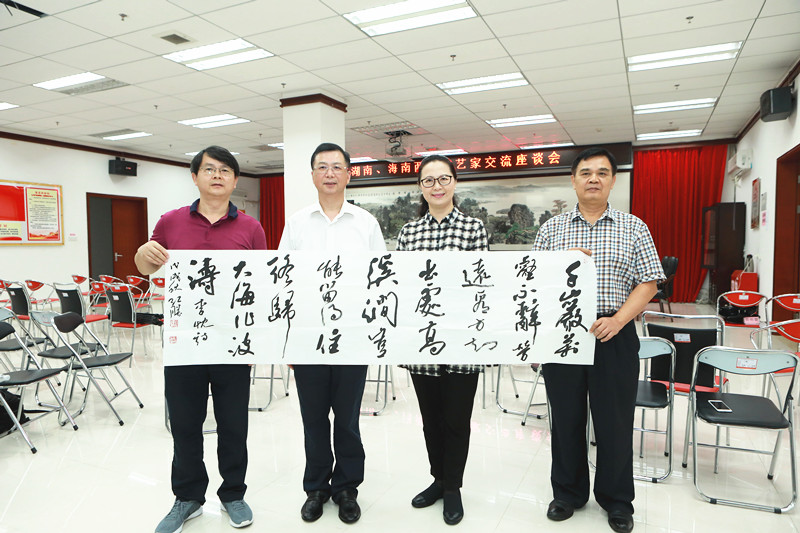 湖南、海南两
艺家交流座谈会
千巖萬
壑不辭勞
遠看方知
出處高
溪澗豈
能留得住
終歸
大海作波
濤 李忱詩
戊戌秋